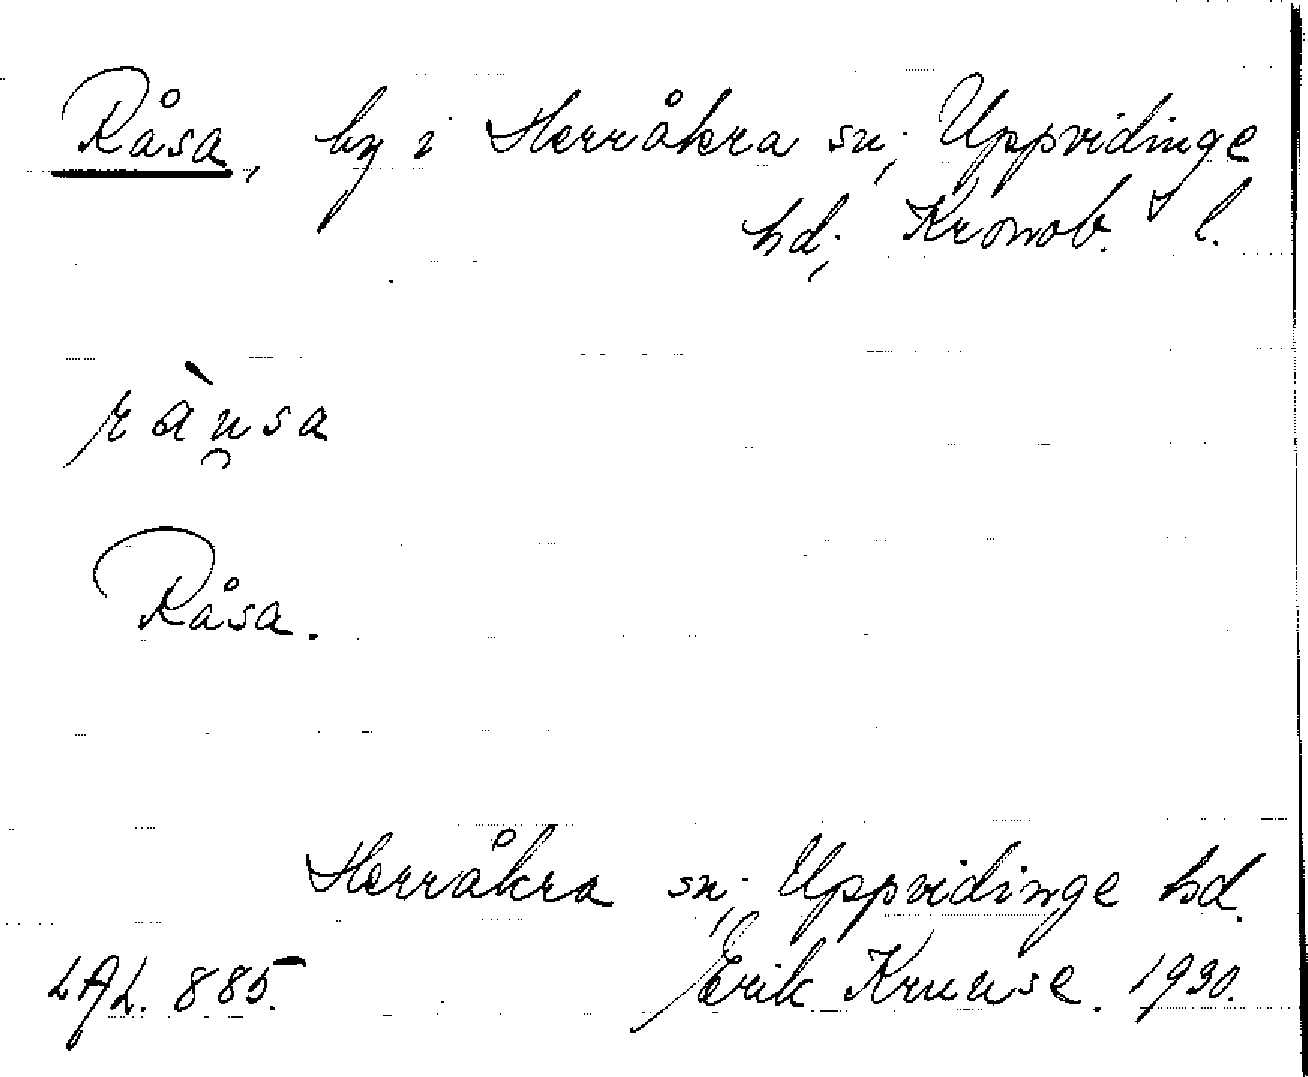 Råsa, by i Herråkra sn., Uppvidinge
hd., Kronob. l.
ràu̯sa
Råsa.
Herråkra sn., Uppvidinge hd.
LAL. 885. Erik Kruuse. 1930.